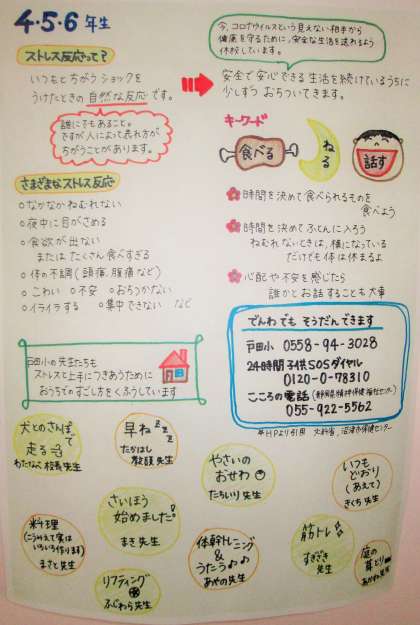 4・5・6年生
ストレス反応って?
いつもとちがうショックを
うけたときの自然な反応です。
誰にでもあること。
ですが人によって表れ方が
ちがうことがあります。
さまざまなストレス反応
○なかなかねむれない
○夜中に目がさめる
○食欲が出ない
またはたくさん食べすぎる
○体の不調(頭痛、腹痛など)
○こわい ○不安 ○おちつかない
○イライラする ○集中できない など
今、コロナウイルスという見えない相手から
健康を守るために、安全な生活を送れるよう
休校しています。
安全で安心できる生活を続けているうちに
少しずつおちついてきます。
キーワード
食べる
ねる
話す
時間を決めて食べられるものを
食べよう
時間を決めてふとんに入ろう
ねむれないときは、横になっている
だけでも体は休まるよ
心配や不安を感じたら
誰かとお話することも大事
でんわでも そうだんできます
戸田小 0558-94-3028
24時間子供SOSダイヤル
0120-0-78310
こころの電話(静岡県精神保健福祉センター)
055-922-5562
※HPより引用 文科省、沼津市保健センター
戸田小の先生たちも
ストレスと上手につきあうために
おうちでのすごし方をくふうしています
犬とのさんぽで
走る
わたなべ校長先生
早ねzzz
たかはし
教頭先生
やさいの
おせわ
たちいり先生
いつも
どおり
(あえて)
きくち先生
料理
(こうみえて実は
いろいろ作ります)
まさと先生
さいほう
始めました!
まき先生
体幹トレーニング
&
うたう♪♪
あやの先生
筋トレ
すぎさき
先生
庭の
草とり
先生
リフティング
ふじわら先生